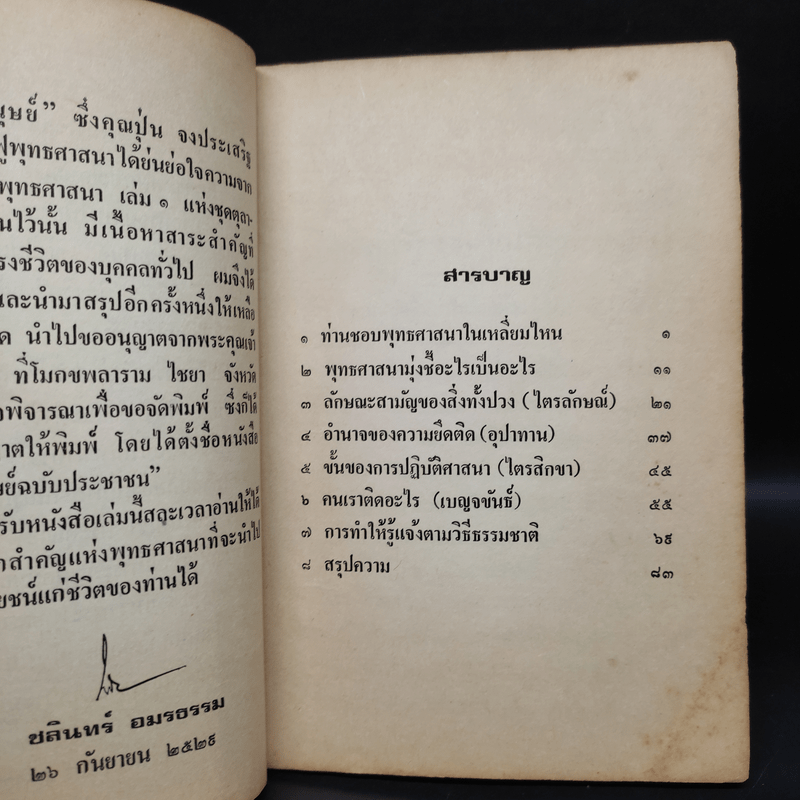 นุษย์” ซึ่งคุณปุ่น จงประเสริฐ
ฟูพุทธศาสนาได้ย่นย่อใจความจาก
พุทธศาสนา เล่ม ๑ แห่งชุดตุลา-
นไว้นั้น มีเนื้อหาสาระสำคัญที่
รงชีวิตของบุคคลทั่วไป ผมจึงได้
และนำมาสรุปอีกครั้งหนึ่งให้เหลือ
ด นำไปขออนุญาตจากพระคุณเจ้า
ที่โมกขพลาราม ไชยา จังหวัด
พิจารณาเพื่อขอจัดพิมพ์ ซึ่งก็ได้
าตให้พิมพ์ โดยได้ตั้งชื่อหนังสือ
ษย์ฉบับประชาชน”
รับหนังสือเล่มนี้สละเวลาอ่านให้ได้
กสำคัญแห่งพุทธศาสนาที่จะนำไป
ยชน์แก่ชีวิตของท่านได้
ชลินทร์ อมรธรรม
๒๖ กันยายน ๒๕๒๙
สารบาญ
๑ ท่านชอบพุทธศาสนาในเหลี่ยมไหน ๑
๒ พุทธศาสนามุ่งชี้อะไรเป็นอะไร ๑๑
๓ ลักษณะสามัญของสิ่งทั้งปวง (ไตรลักษณ์) ๒๑
๔ อำนาจของความยึดติด (อุปาทาน) ๓๗
๕ ขั้นของการปฏิบัติศาสนา (ไตรสิกขา) ๔๕
๖ คนเราติดอะไร (เบญจขันธ์) ๕๕
๗ การทำให้รู้แจ้งตามวิธีธรรมชาติ ๖๙
๘ สรุปความ ๘๓